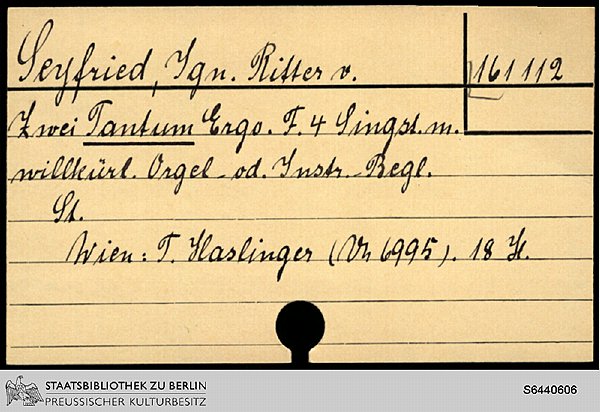 Seyfried, Ign. Ritter v.
161 112
Zwei Tantum Ergo. F. 4 Singst. m.
willkürl. Orgel- od. Instr.-Begl.
St.
Wien: T. Haslinger (Vn 6995). 18 H.
STAATSBIBLIOTHEK ZU BERLIN
PREUSSISCHER KULTURBESITZ
S6440606